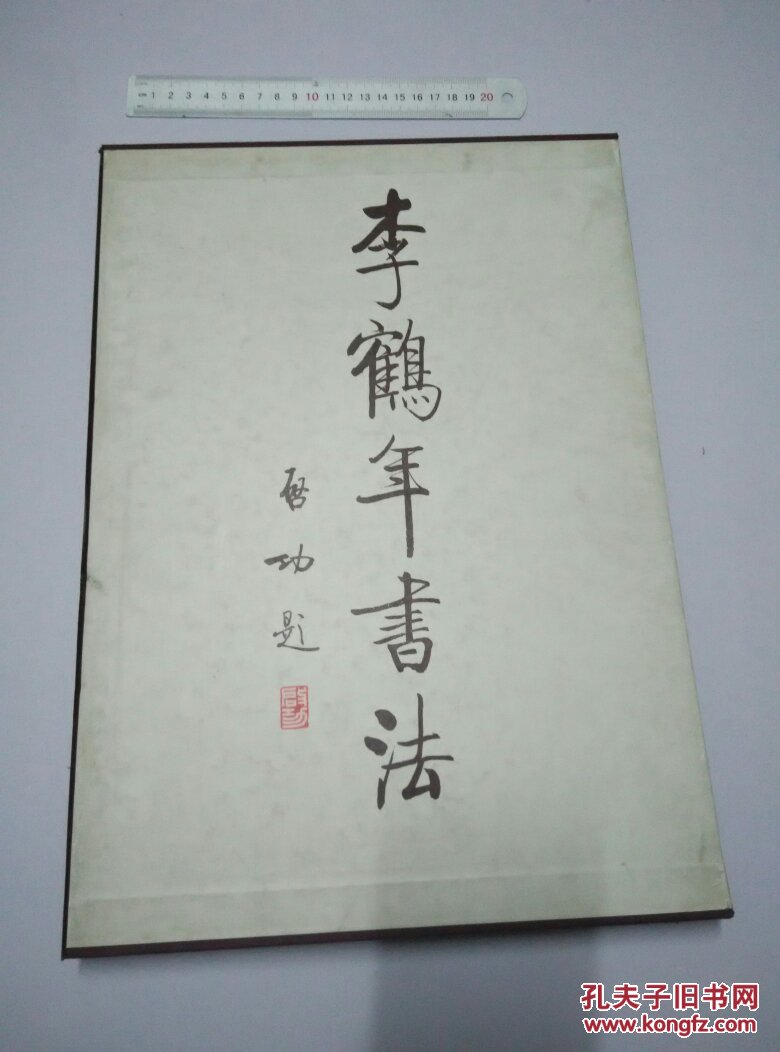 1 2 3 4 5 6 7 8 9 10 11 12 13 14 15 16 17 18 19 20
李鶴年書法
启功題
啟功
孔夫子旧书网
www.kongfz.com